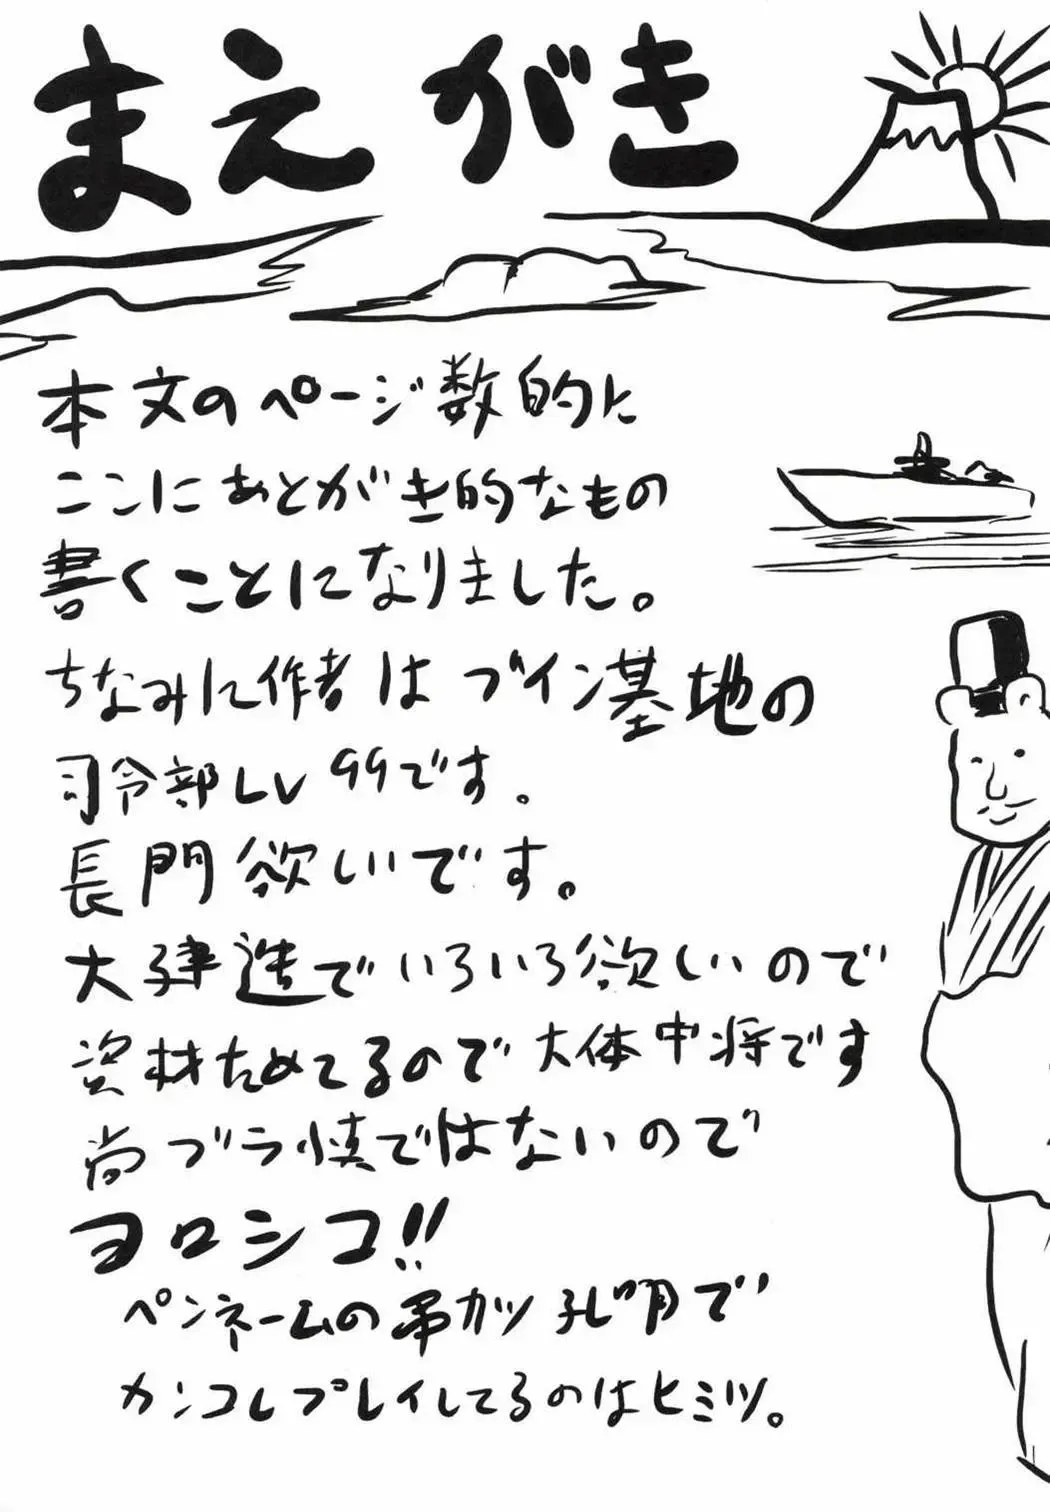 まえがき
本文のページ数的に
ここにあとがき的なもの
書くことになりました。
ちなみに作者は ブイン基地の
司令部Lv99です。
長門欲しいです。
大建造でいろいろ欲しいので
資材ためてるので大体中将です
尚ブラ慎ではないので
ヨロシコ!!
ペンネームの串カツ孔明で
カンコレプレイしてるのはヒミツ。